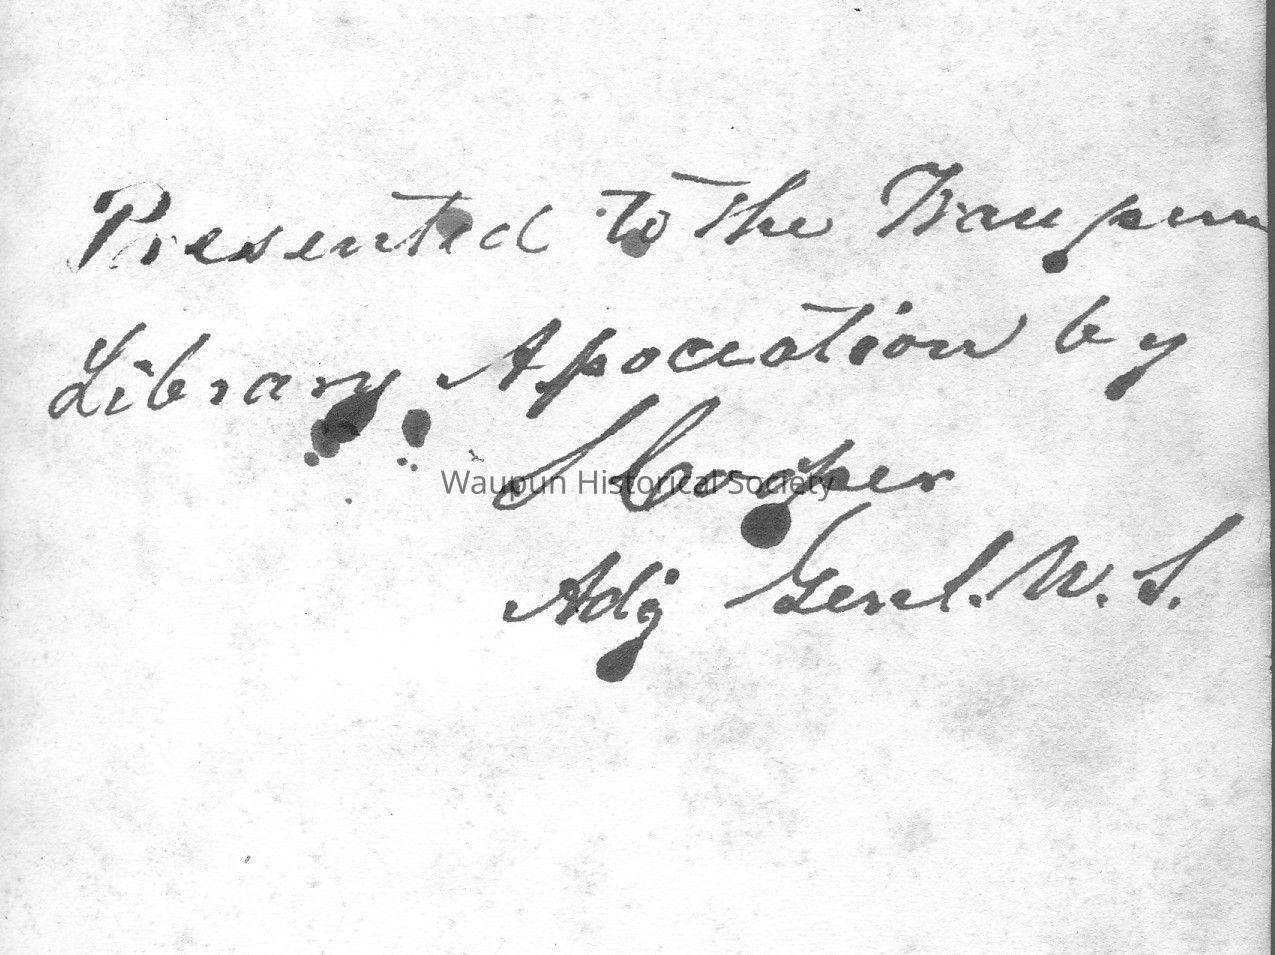 Presented to the Waupun
Library Association by
S Cooper
Waupun Historical Society
Adj Genl. W. S.